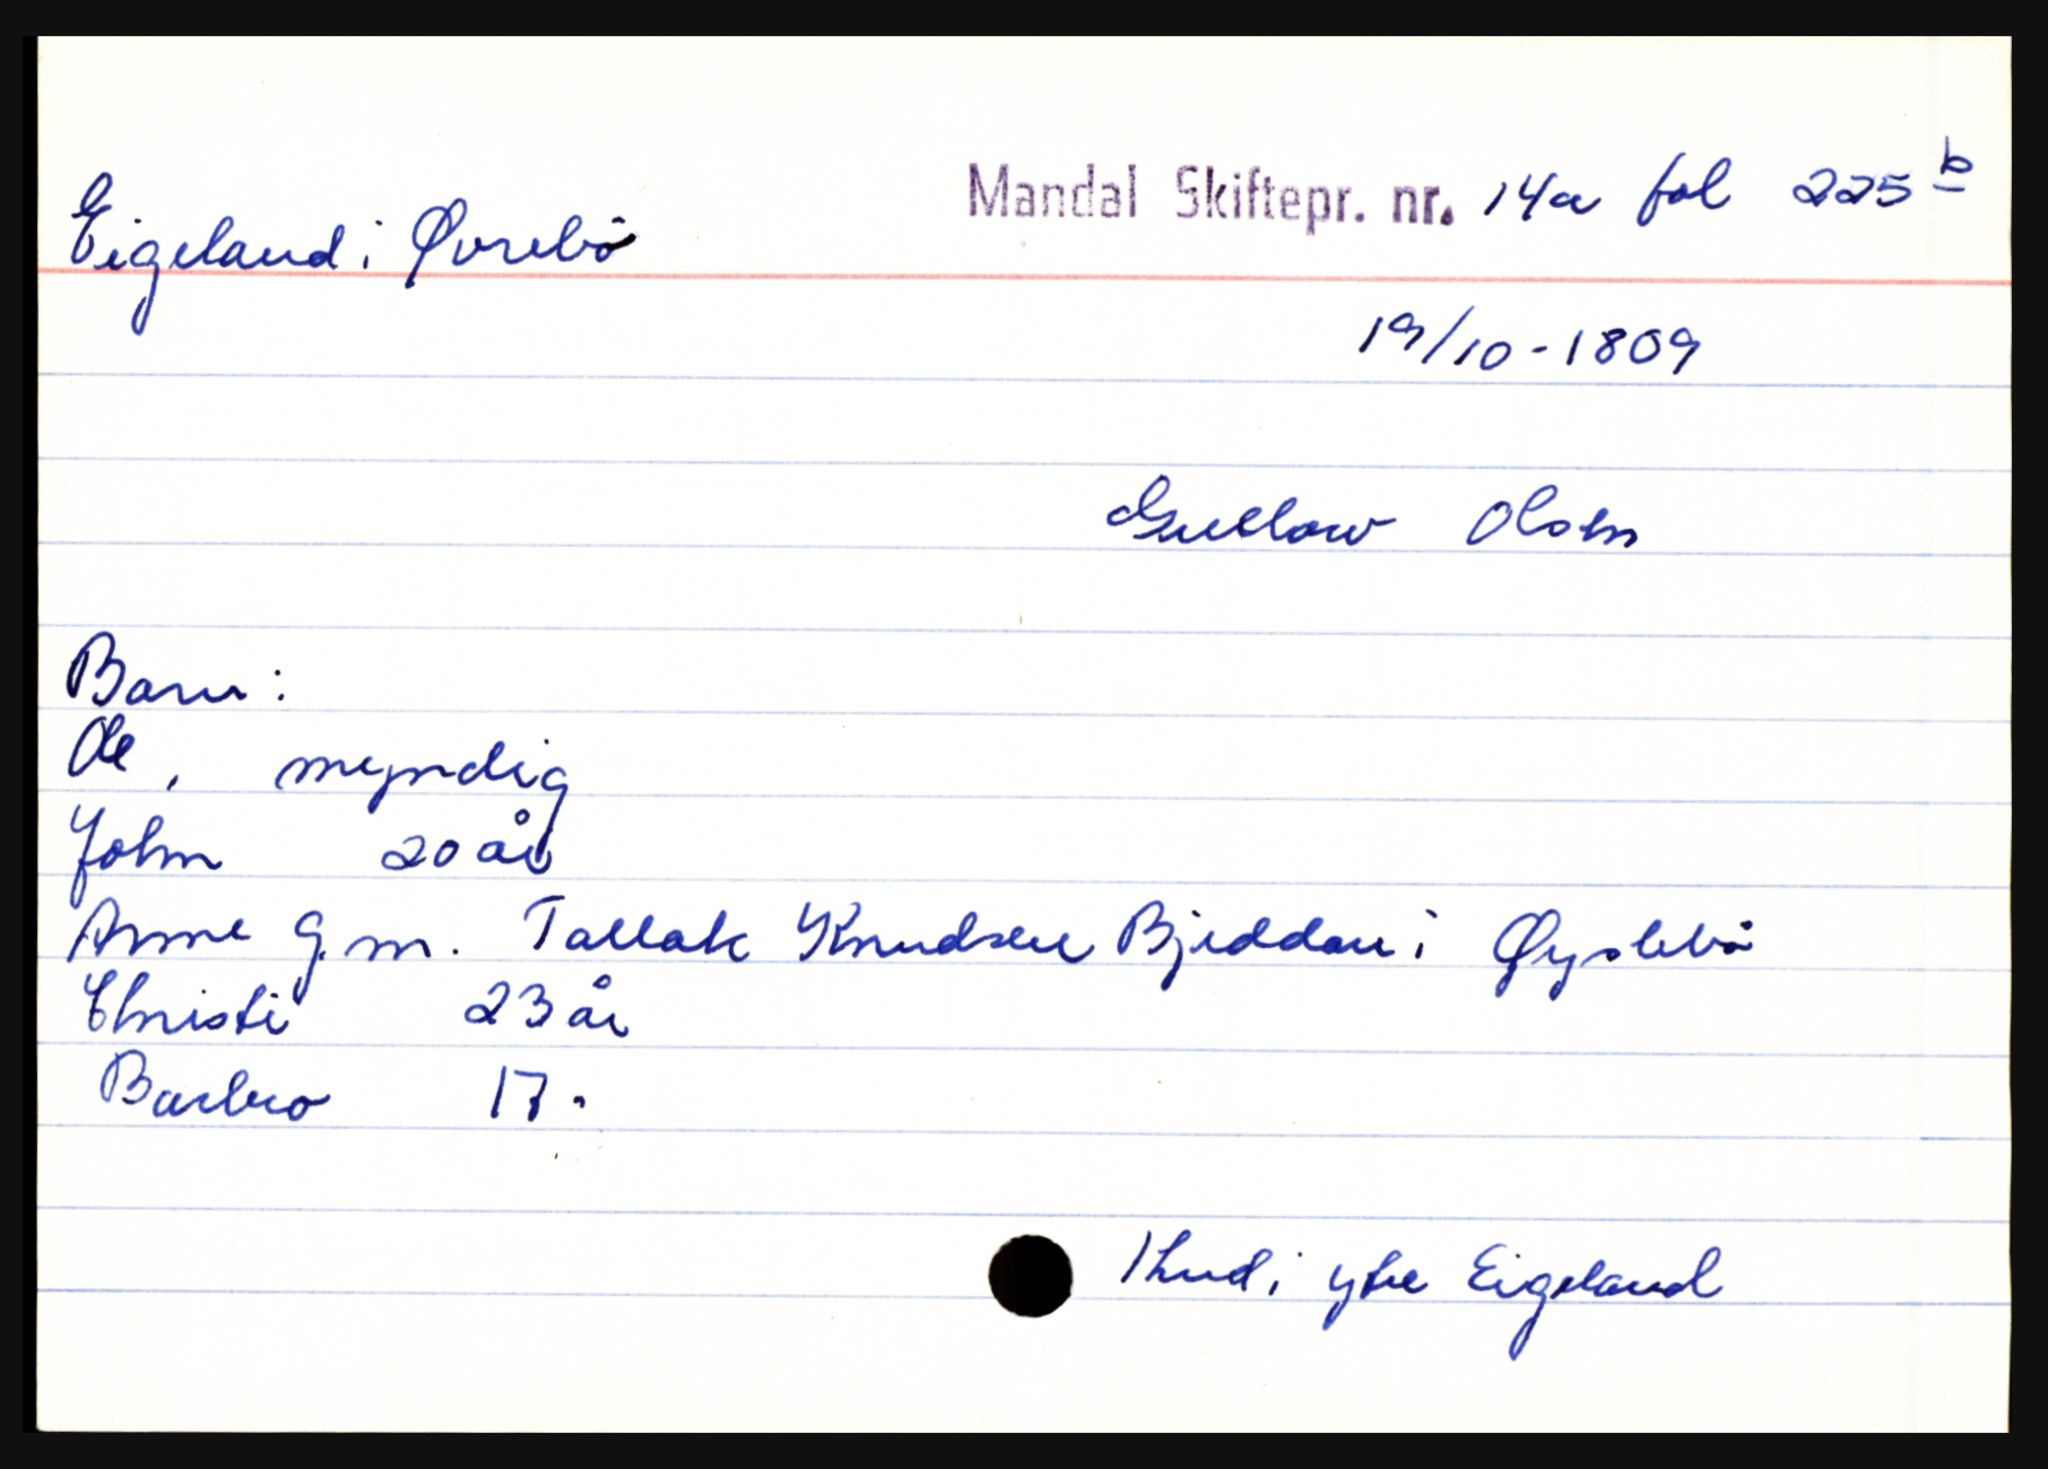 Mandal Skiftepr. nr. 14a fol 225 b
Eigeland i Øvrebö
19/10-1809
Gullow Olsen
Barn:
Ole, myndig
John 20 år
Anne g.m. Tallak Knudsen Bjeddan i Øyslebö
Christi 23 år
Barbro 17.
1 hud i ytre Eigeland